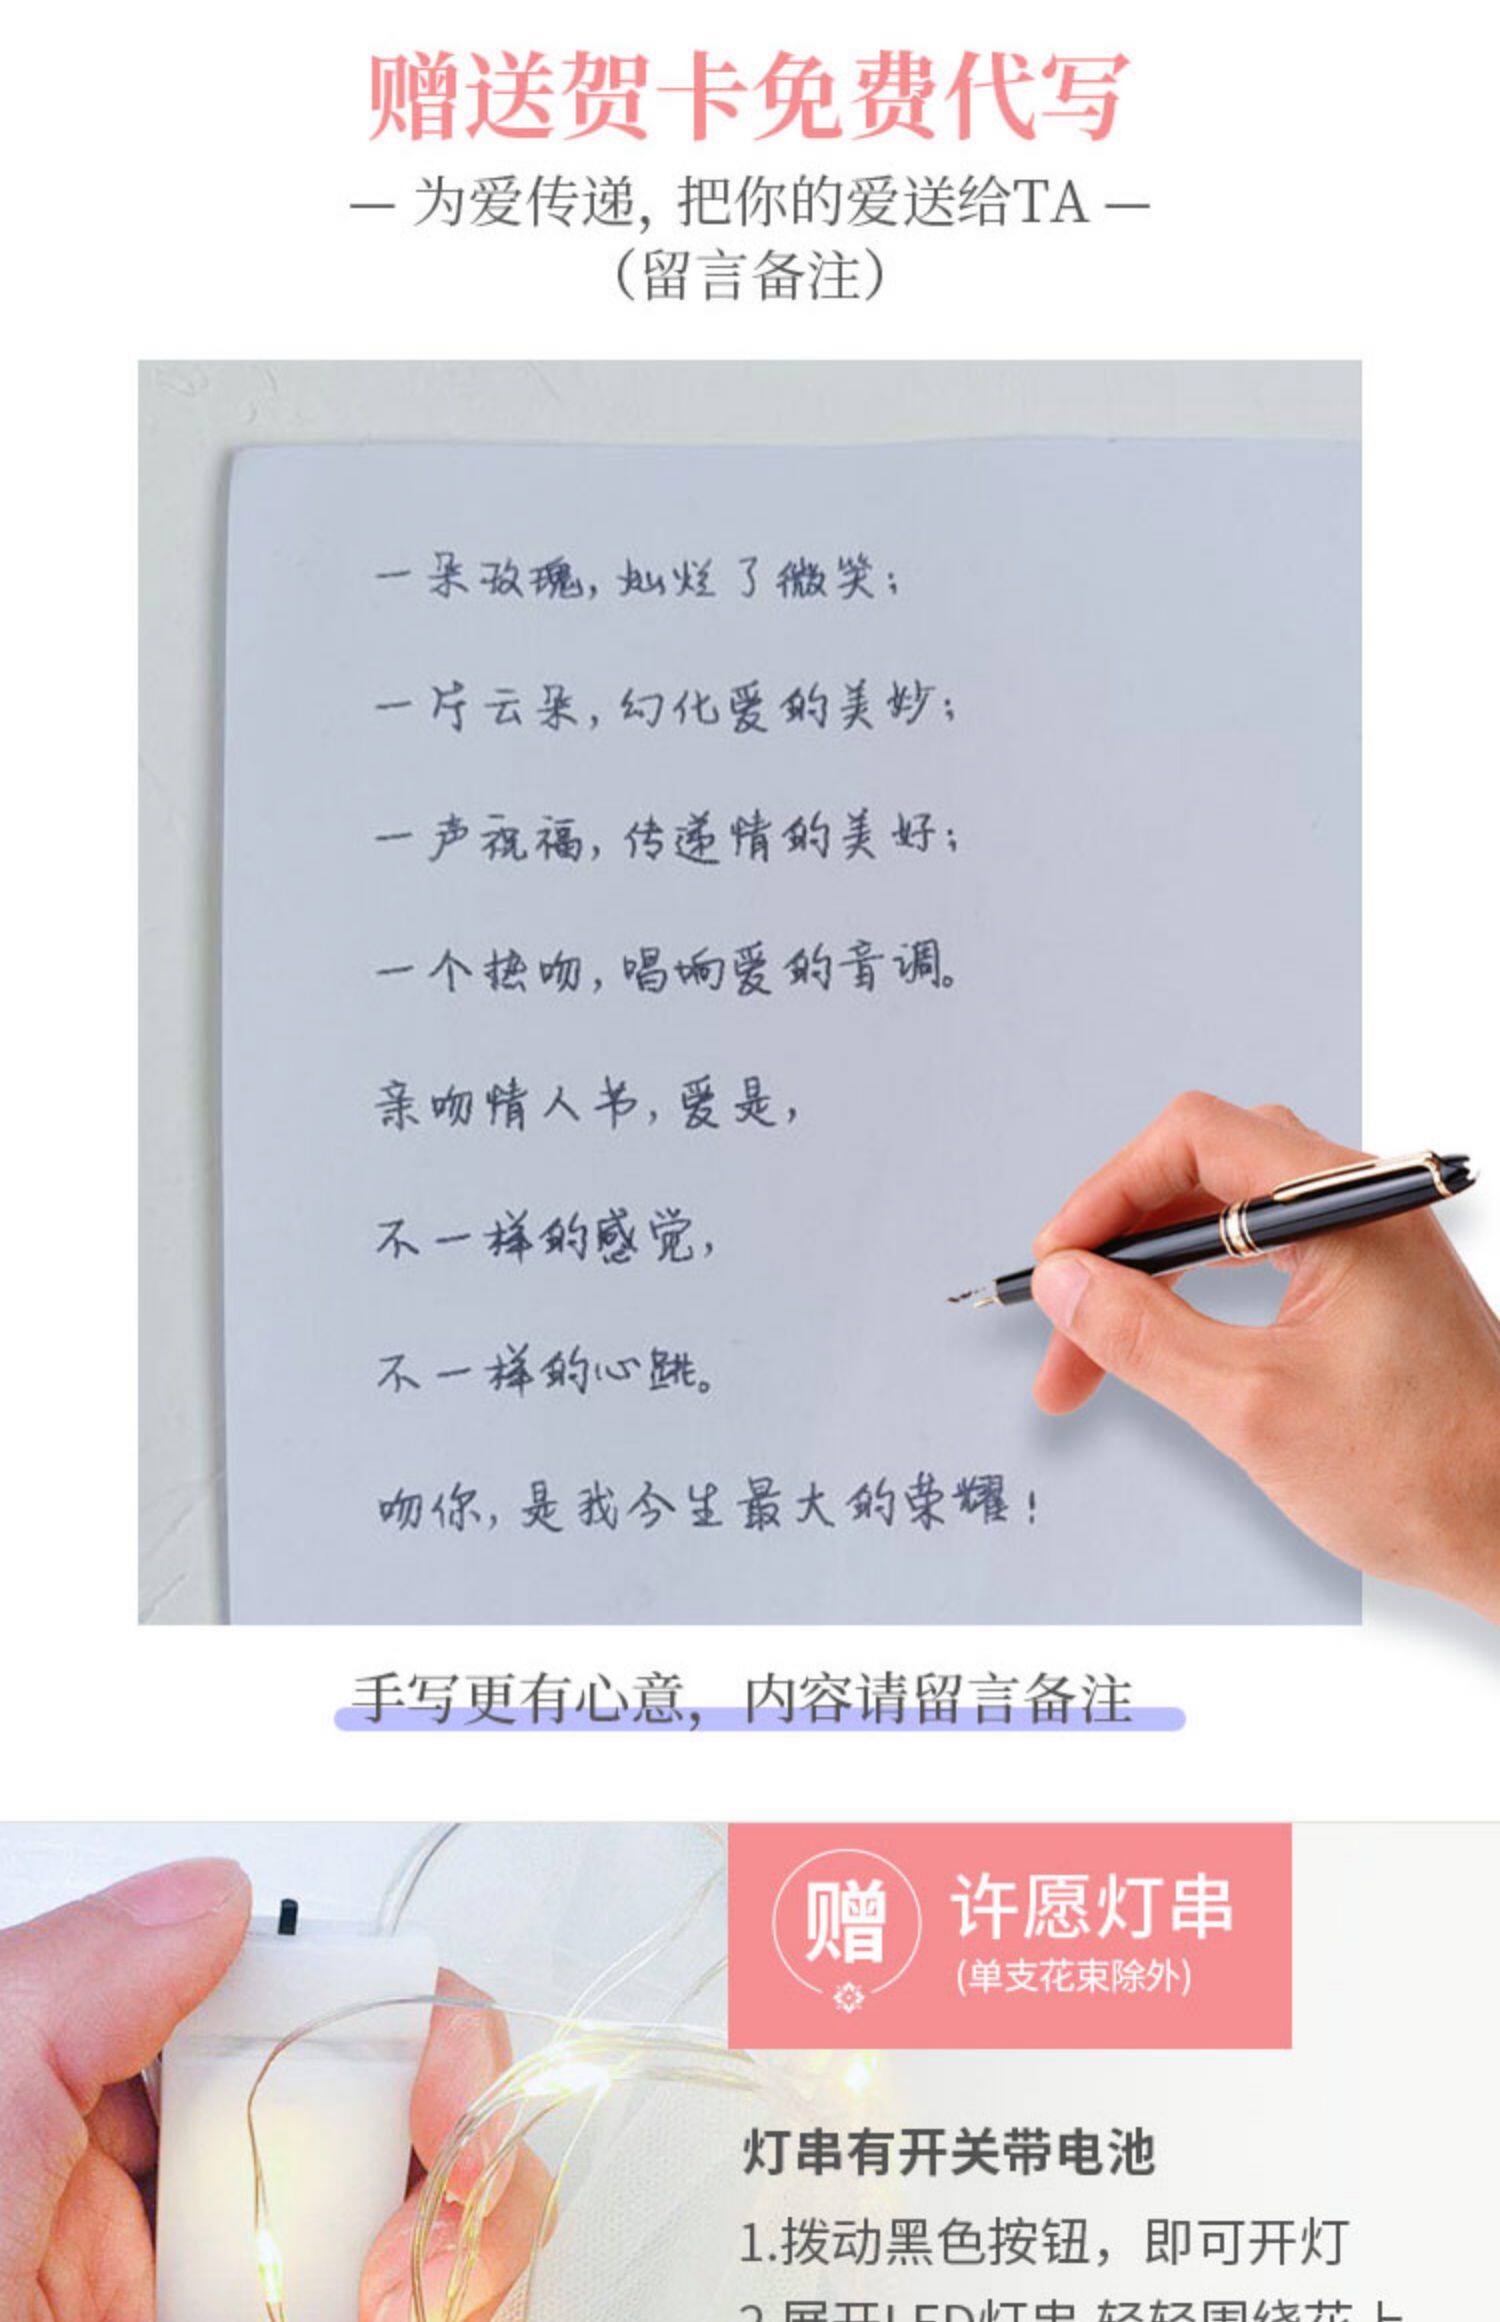 赠送贺卡免费代写
— 为爱传递, 把你的爱送给TA —
（留言备注）
一朵玫瑰，灿烂了微笑；
一片云朵，幻化爱的美妙；
一声祝福，传递情的美好；
一个热吻，唱响爱的音调。
亲吻情人节，爱是，
不一样的感觉，
不一样的心跳。
吻你，是我今生最大的荣耀！
手写更有心意， 内容请留言备注
赠
许愿灯串
(单支花束除外)
灯串有开关带电池
1.拨动黑色按钮，即可开灯
2.展开LED灯串,轻轻围绕花上